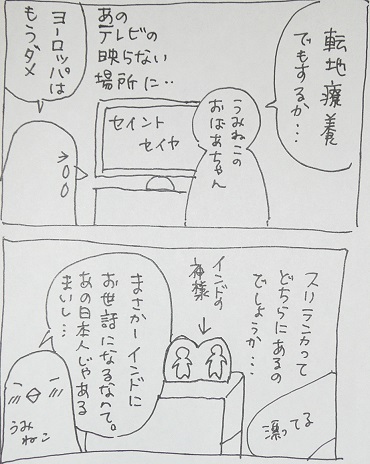 転地療養
でもするか…
あの
テレビの
映らない
場所に‥
ヨーロッパは
もうダメ
うみねこの
おばあちゃん
セイント
セイヤ
スリランカって
どちらにあるの
でしょうか…
漂ってる
インドの
神様
まさかーインドに
お世話になるなんて。
あの日本人じゃある
まいし…
うみ
ねこ